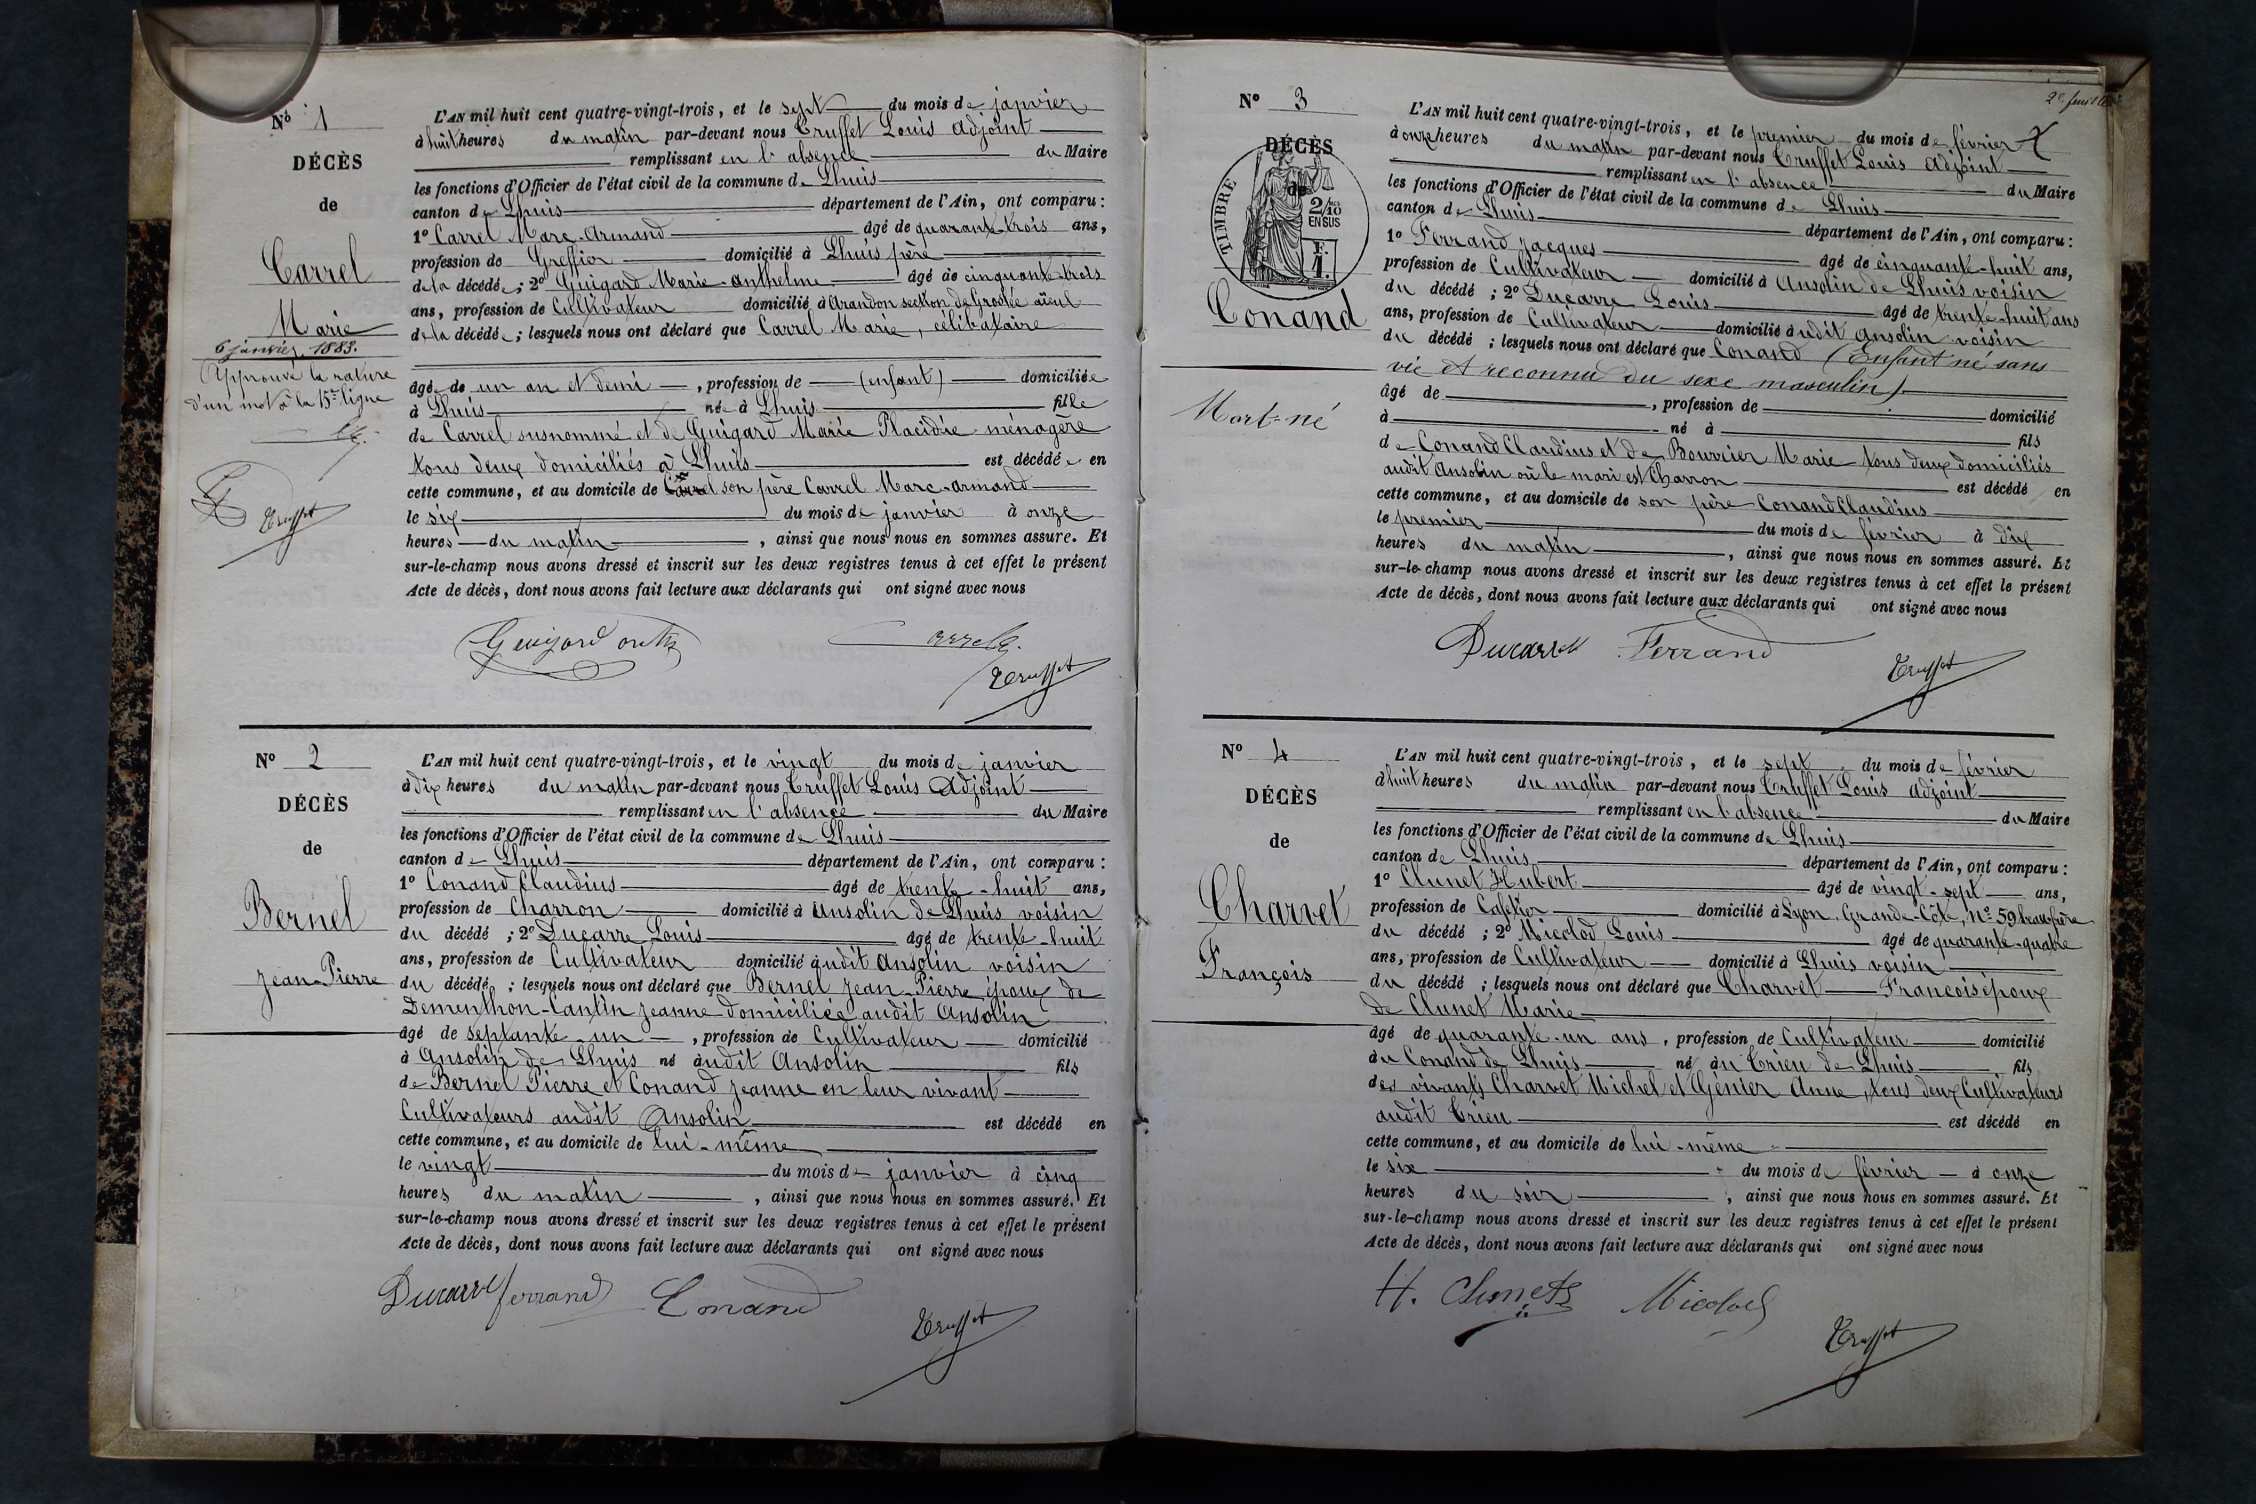 Nº 1
DÉCÈS
de
Carrel
Marie
6 janvier 1883.
Approuvé la rature
d'un mot à la 15me ligne
Truffet
L'AN mil huit cent quatre-vingt-trois, et le sept du mois de janvier
à huit heures du matin par-devant nous Truffet Louis adjoint
remplissant en l'absence du Maire
les fonctions d'Officier de l'état civil de la commune de Lhuis
canton de Lhuis département de l'Ain, ont comparu :
1º Carrel Marc-Armand âgé de quarante-trois ans,
profession de Greffier domicilié à Lhuis père
de la décédée ; 2º Guigard Marie-Anthelme âgé de cinquante-trois
ans, profession de Cultivateur domicilié à Arandon section de Groslée aïeul
de la décédée ; lesquels nous ont déclaré que Carrel Marie, célibataire
âgée de un an et demi , profession de (enfant) domiciliée
à Lhuis née à Lhuis fille
de Carrel susnommé et de Guigard Marie Placidie ménagère
tous deux domiciliés à Lhuis est décédée en
cette commune, et au domicile de Carrel son père Carrel Marc-Armand
le six du mois de janvier à onze
heures du matin , ainsi que nous nous en sommes assuré. Et
sur-le-champ nous avons dressé et inscrit sur les deux registres tenus à cet effet le présent
Acte de décès, dont nous avons fait lecture aux déclarants qui ont signé avec nous
Guigard Carrel
Truffet
Nº 2
DÉCÈS
de
Bernel
Jean-Pierre
L'AN mil huit cent quatre-vingt-trois, et le vingt du mois de janvier
à dix heures du matin par-devant nous Truffet Louis Adjoint
remplissant en l'absence du Maire
les fonctions d'Officier de l'état civil de la commune de Lhuis
canton de Lhuis département de l'Ain, ont comparu :
1º Conand Claudius âgé de trente-huit ans,
profession de Charron domicilié à Ansolin de Lhuis voisin
du décédé ; 2º Ducarre Louis âgé de trente-huit
ans, profession de Cultivateur domicilié audit Ansolin voisin
du décédé ; lesquels nous ont déclaré que Bernel Jean-Pierre époux de
Dementhon-Cantin Jeanne domiciliée audit Ansolin
âgé de septante-un , profession de Cultivateur domicilié
à Ansolin de Lhuis né audit Ansolin fils
de Bernel Pierre et Conand Jeanne en leur vivant
Cultivateurs audit Ansolin est décédé en
cette commune, et au domicile de lui-même
le vingt du mois de janvier à cinq
heures du matin , ainsi que nous nous en sommes assuré. Et
sur-le-champ nous avons dressé et inscrit sur les deux registres tenus à cet effet le présent
Acte de décès, dont nous avons fait lecture aux déclarants qui ont signé avec nous
Ducarre ferrand Conand
Truffet
Nº 3
DÉCÈS
de
TIMBRE
2/10
EN SUS
F.
1.
Conand
Mort-né
L'AN mil huit cent quatre-vingt-trois, et le premier du mois de février
à onze heures du matin par-devant nous Truffet Louis adjoint
remplissant en l'absence du Maire
les fonctions d'Officier de l'état civil de la commune de Lhuis
canton de Lhuis département de l'Ain, ont comparu :
1º Ferrand Jacques âgé de cinquante-huit ans,
profession de Cultivateur domicilié à Ansolin de Lhuis voisin
du décédé ; 2º Ducarre Louis âgé de trente-huit ans
ans, profession de Cultivateur domicilié audit Ansolin voisin
du décédé ; lesquels nous ont déclaré que Conand (Enfant né sans
vie et reconnu du sexe masculin)
âgé de , profession de domicilié
à né à fils
de Conand Claudius et de Bouvier Marie tous deux domiciliés
audit Ansolin où le mari est Charron est décédé en
cette commune, et au domicile de son père Conand Claudius
le premier du mois de février à dix
heures du matin , ainsi que nous nous en sommes assuré. Et
sur-le-champ nous avons dressé et inscrit sur les deux registres tenus à cet effet le présent
Acte de décès, dont nous avons fait lecture aux déclarants qui ont signé avec nous
Ducarre Ferrand
Truffet
Nº 4
DÉCÈS
de
Charvet
François
L'AN mil huit cent quatre-vingt-trois, et le sept du mois de février
à huit heures du matin par-devant nous Truffet Louis adjoint
remplissant en l'absence du Maire
les fonctions d'Officier de l'état civil de la commune de Lhuis
canton de Lhuis département de l'Ain, ont comparu :
1º Clunet Hubert âgé de vingt-sept ans,
profession de Cafetier domicilié à Lyon, Grande-Côte, Nº 59 beau-frère
du décédé ; 2º Micolod Louis âgé de quarante-quatre
ans, profession de Cultivateur domicilié à Lhuis voisin
du décédé ; lesquels nous ont déclaré que Charvet François époux
de Clunet Marie
âgé de quarante-un ans , profession de Cultivateur domicilié
au Conand de Lhuis né au Crieu de Lhuis fils
des vivants Charvet Michel et Génier Anne, tous deux Cultivateurs
audit Crieu est décédé en
cette commune, et au domicile de lui-même
le six du mois de février à onze
heures du soir , ainsi que nous nous en sommes assuré. Et
sur-le-champ nous avons dressé et inscrit sur les deux registres tenus à cet effet le présent
Acte de décès, dont nous avons fait lecture aux déclarants qui ont signé avec nous
H. Clunet Micolod
Truffet